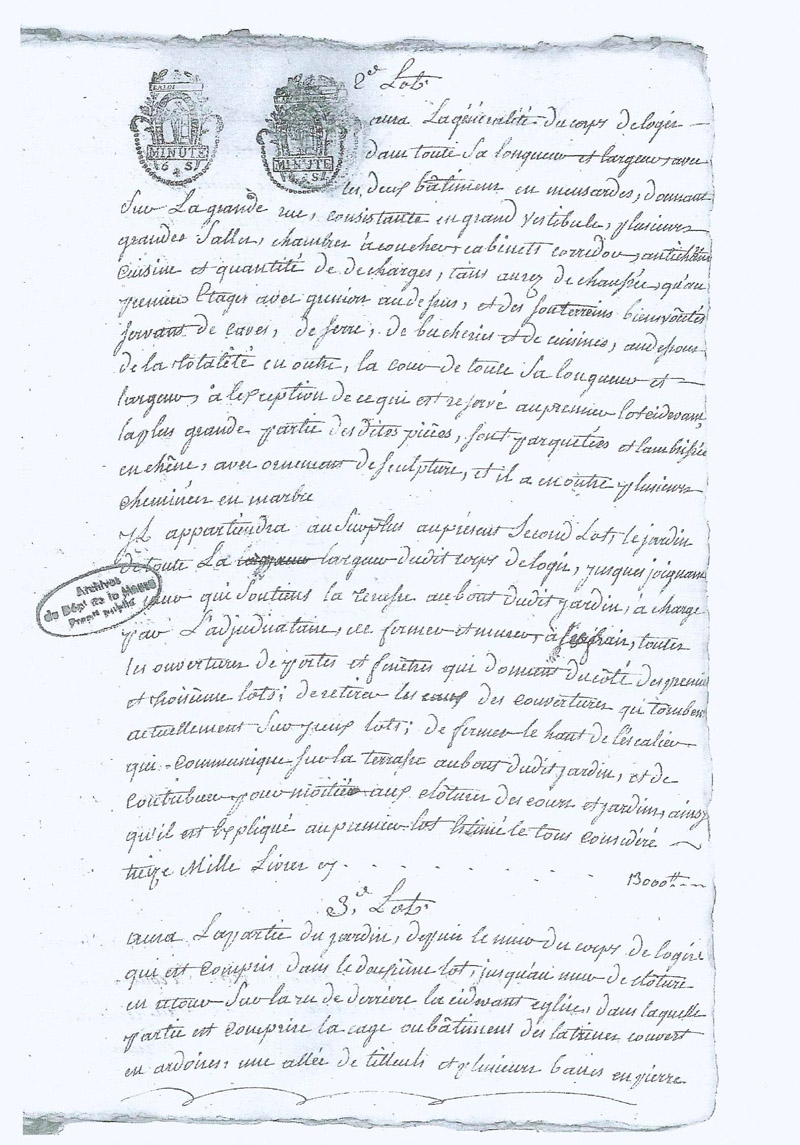 LA LOI
MINUTE
6 s
MINUTE
6 s
2.e Lot.
aura La généralité du corps de logis
dans toute Sa longueur et largeur, avec
les deux bâtimens en mensardes, donnant
Sur La grande rue, consistante en grand vestibule, plusieurs
grandes Salles, chambres à coucher, cabinets corridor, antichambre
cuisine et quantité de decharges, tans au rez de chaussée, qu'au
premier Etages avec grenier au dessus, et des souterreins bien voûtés
servant de caves, de serre, de bucheries et de cuisines, au dessous
de la totalété en outre, la cour de toute Sa longueur et
largeur, à l'exception de ce qui est reservé au premier lot cidevant,
la plus grande partie des dites pièces, sont parquetées et lambrissées
en chêne, avec ornement de sculpture, et il a en outre plusieurs
cheminées en marbre
Il appartiendra au Surplus au présent Second Lot, le jardin
de toute La largeur dudit corps de logis, jusques joignant
mur qui Soutiens la terasse au bout dudit jardin, a charge
par L'adjudicataire, de fermer et murer, à ses frais, toutes
les ouvertures de portes et fenêtres qui donnent du côté des premier
et troisième lots; de retirer les des couvertures qui tombent
actuellement Sur yceux lots; de fermer le haut de l'éscalier
qui communique sur la terrasse au bout dudit jardin, et de
contribuer pour moitiée aux clôtures des cours et jardins, ainsy
qu'il est Expliqué au premier lot Estimé le tous considéré
treize Mille Livres cy . . . . . . 13000.tt
3.e Lot.
aura La partie du jardin, depuis le mur du corps de logis
qui est compris dans le deuxième lot, jusqu'au mur de clôture
en retour Sur la rue de derriere la cidevant eglise, dans laquelle
partie est comprise la cage ou bâtiment des latrines couvert
en ardoises: une allée de tilleuls et plusieurs bancs en pierre
Archives
du Dépt de la Meuse